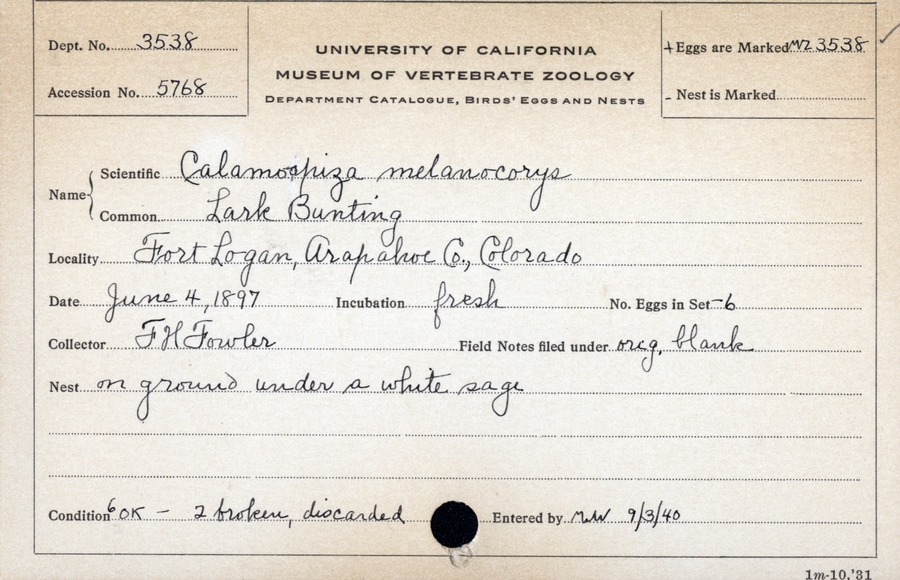 Dept. No. 3538
Accession No. 5768
UNIVERSITY OF CALIFORNIA
MUSEUM OF VERTEBRATE ZOOLOGY
DEPARTMENT CATALOGUE, BIRDS' EGGS AND NESTS
+ Eggs are Marked MVZ 3538 ✓
- Nest is Marked
Name { Scientific Calamospiza melanocorys
Common Lark Bunting
Locality Fort Logan, Arapahoe Co., Colorado
Date June 4, 1897 Incubation fresh No. Eggs in Set -6
Collector F H Fowler Field Notes filed under orig. blank
Nest on ground under a white sage
Condition 6 OK - 2 broken, discarded Entered by 9/3/40
1m-10,'31